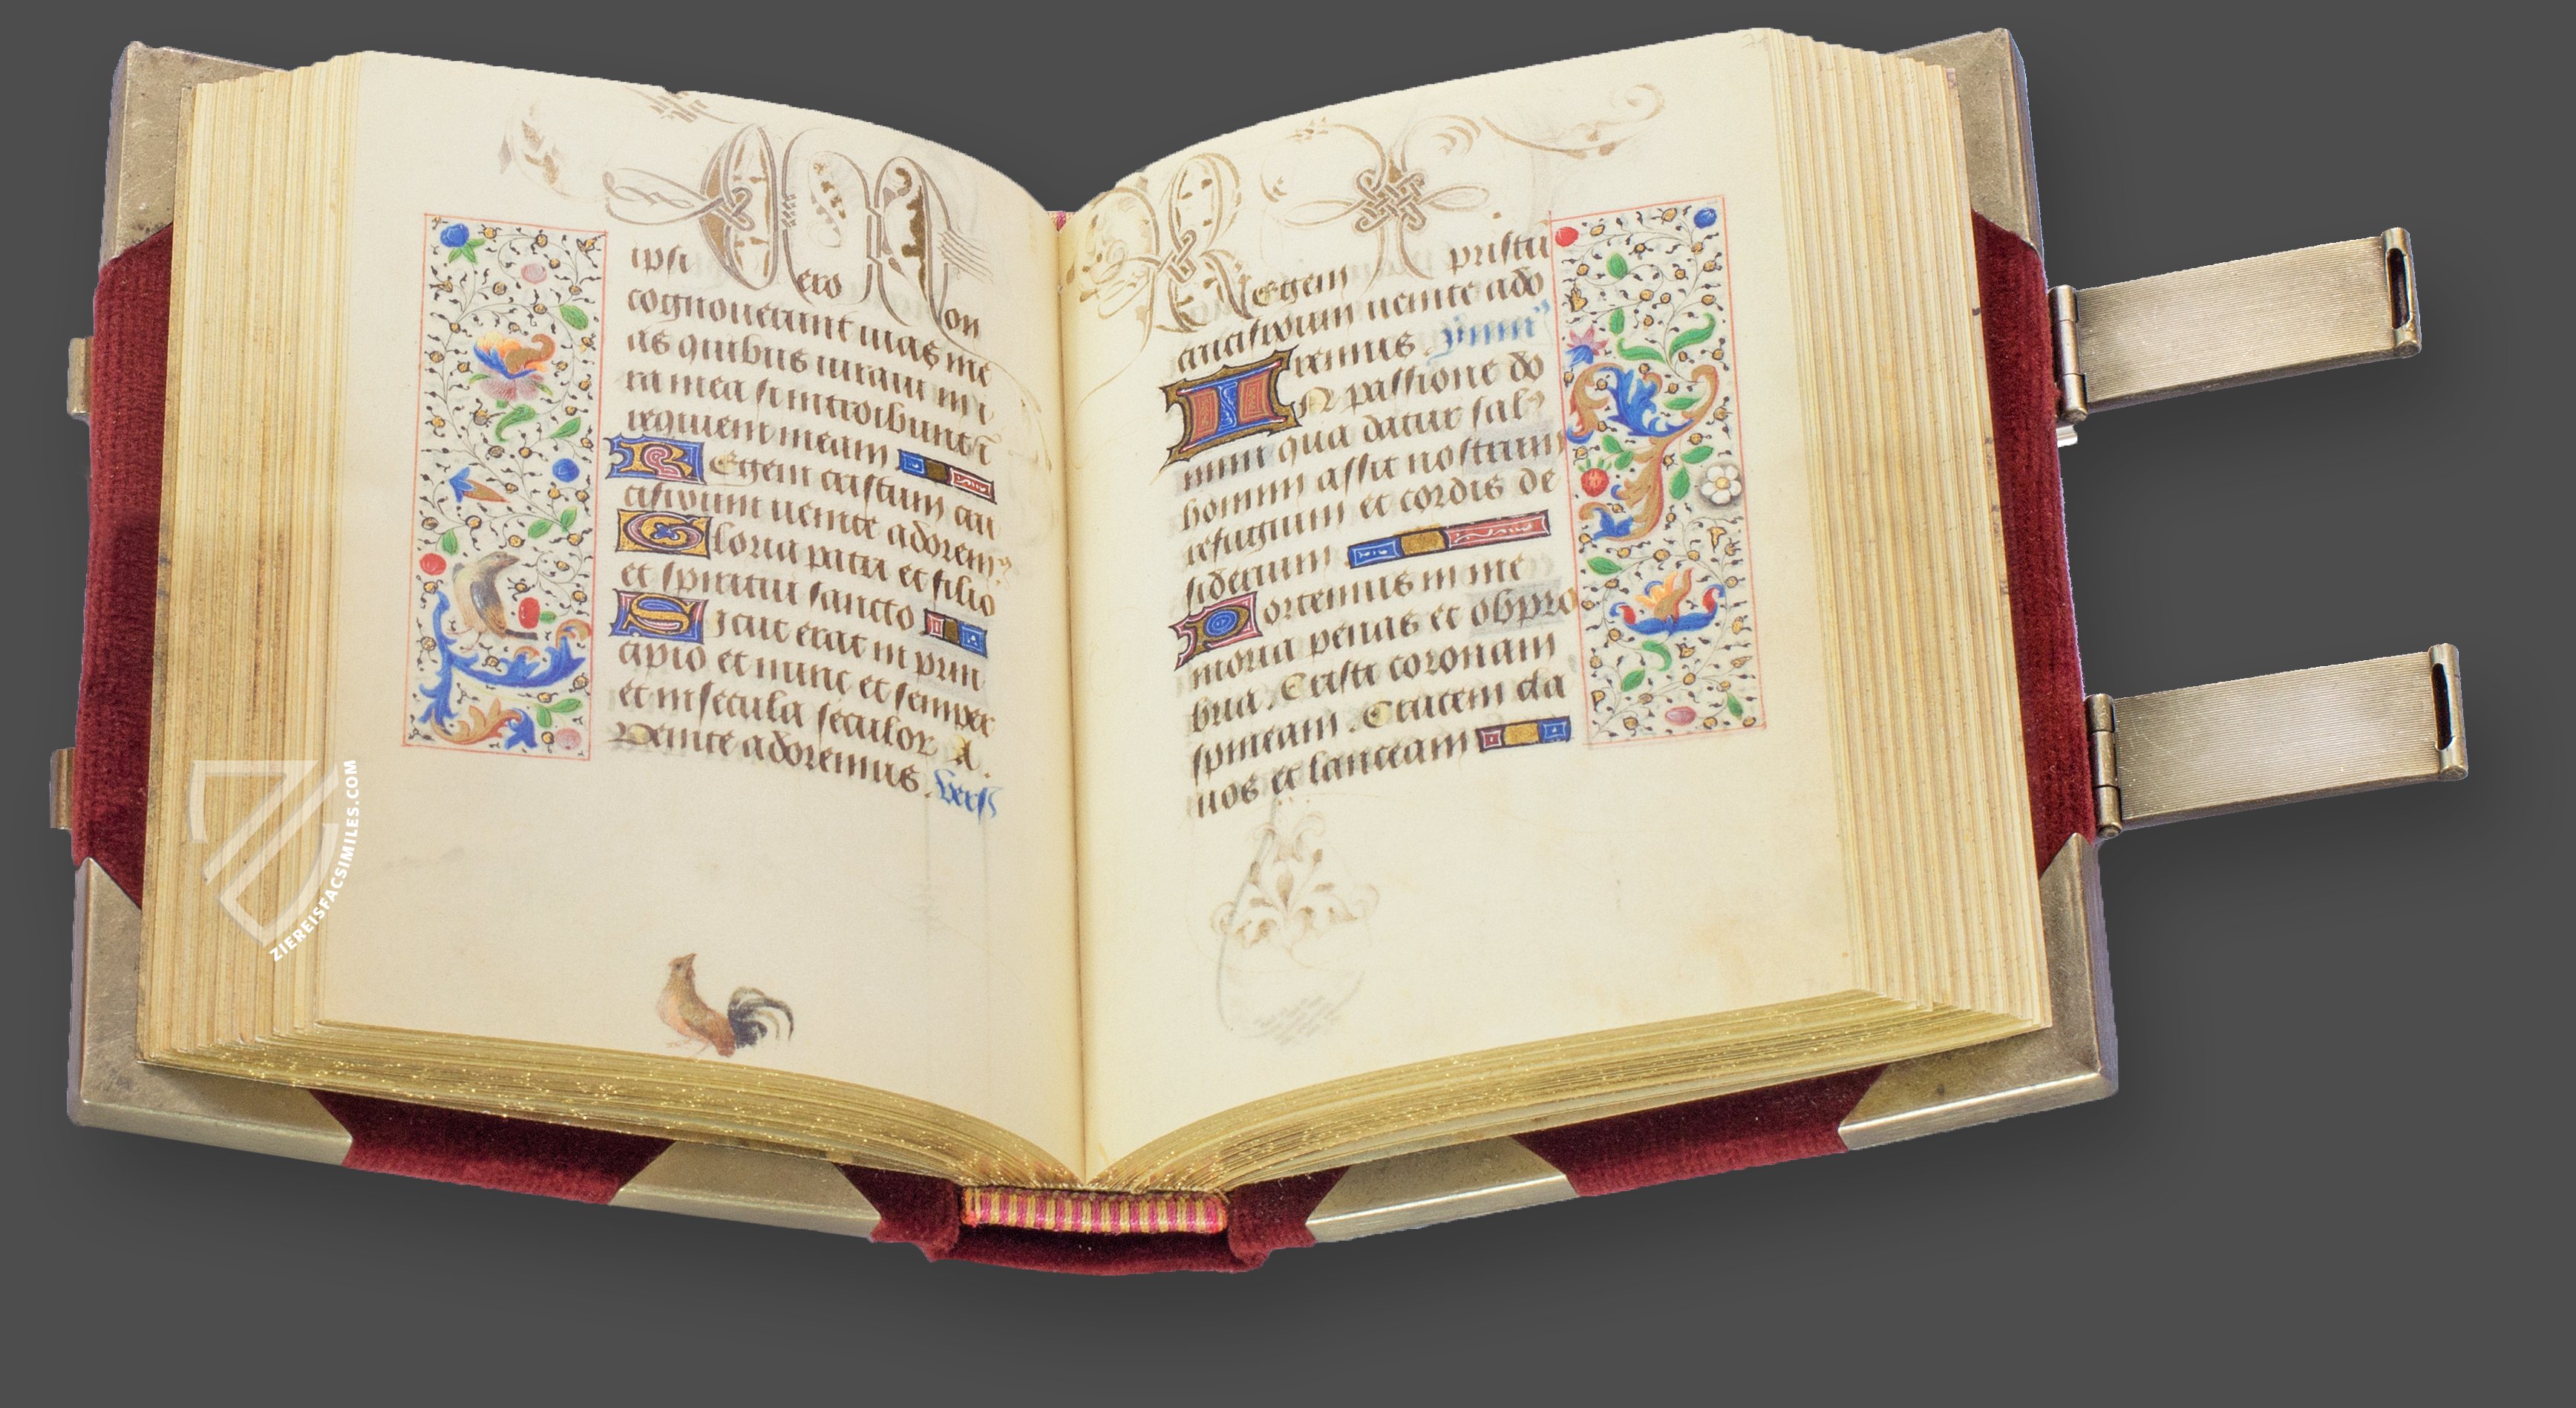 ipsi vero non
cognouerunt uias me
as quibus iuraui in i
ra mea si introibunt ī
requiem meam
Regem cristum cru
cifixum uenite adorem⁹
Gloria patri et filio
et spiritui sancto
Sicut erat in prin
cipio et nunc et semper
et in secula seculoꝝ A.
Venite adoremus. Vers
Regem xpristū
crucifixum uenite ado
remus. ymn⁹
IN passione do
mini qua datur sal⁹
homini assit nostrum
refugium et cordis de
siderium
Portemus in me
moria penas et obpro
bria. Cristi coronam
spineam. Crucem cla
uos et lanceam
ZIEREISFACSIMILES.COM